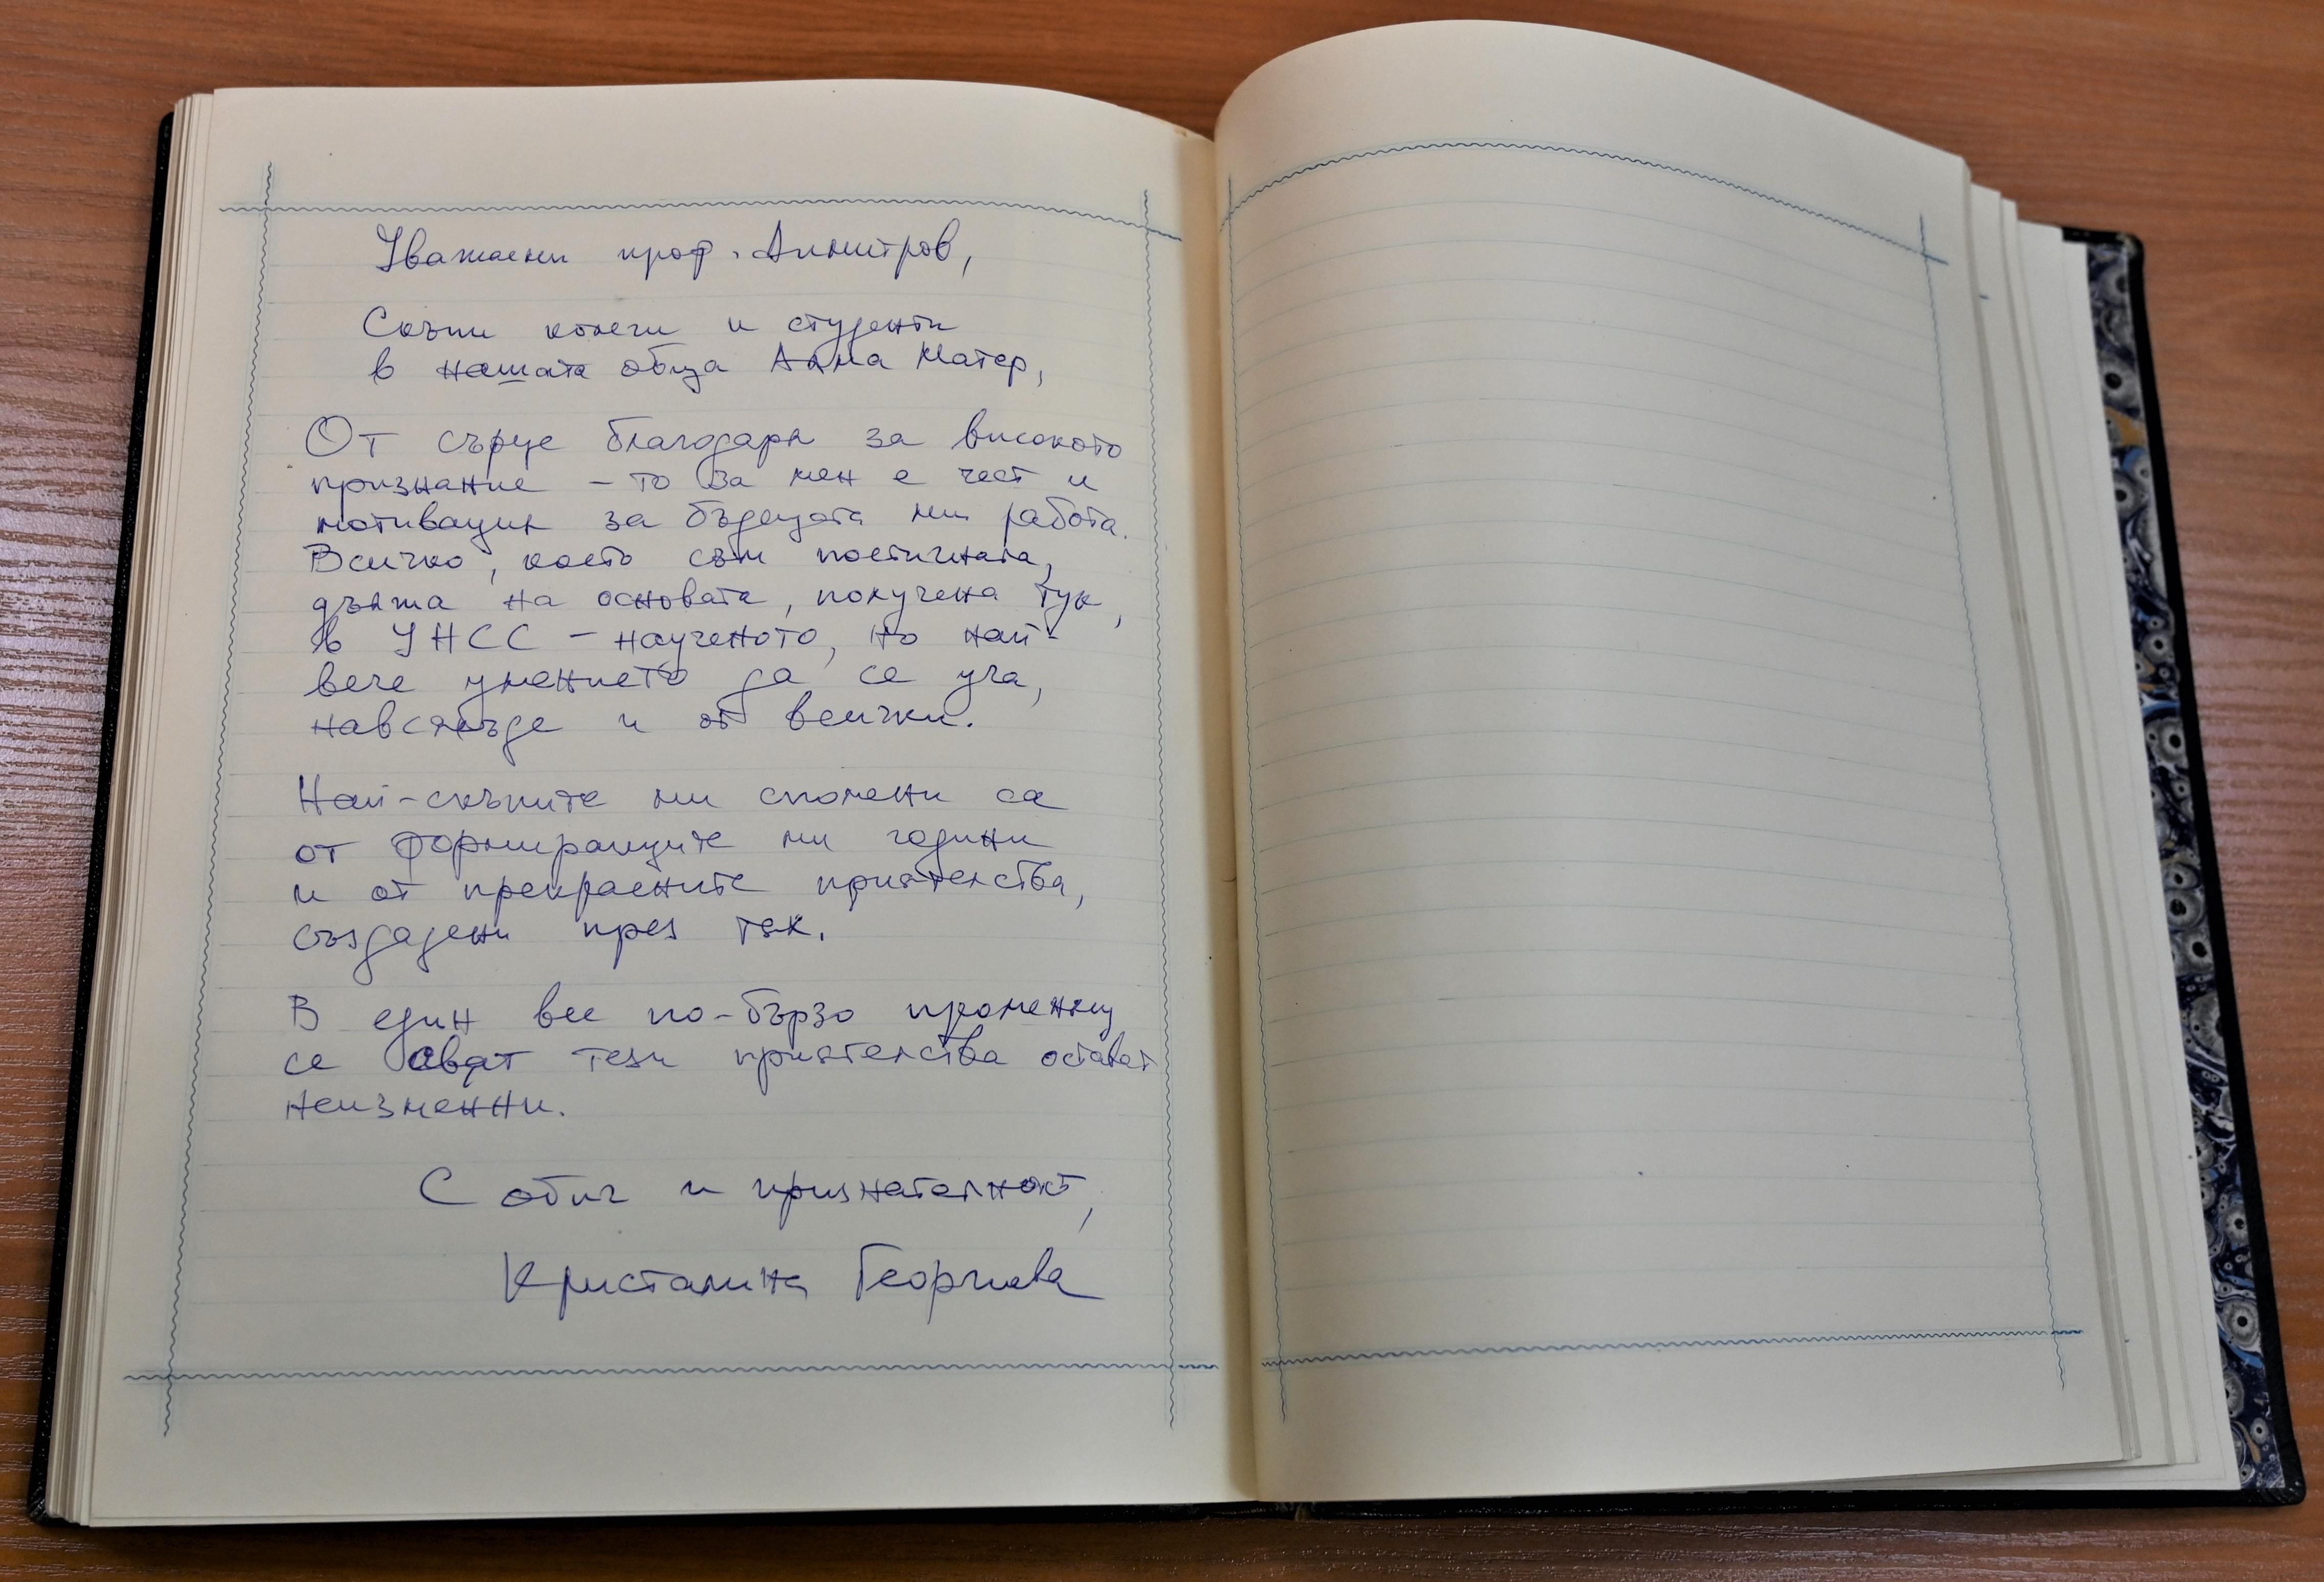 Уважаеми проф. Димитров,
Скъпи колеги и студенти
в нашата обща Алма Матер,
От сърце благодаря за високото
признание – то за мен е чест и
мотивация за бъдещата ми работа.
Всичко, което съм постигнала,
дължа на основата, получена тук,
в УНСС – наученото, но най-
вече умението да се уча,
навсякъде и от всички.
Най-скъпите ми спомени са
от формиращите ми години
и от прекрасните приятелства,
създадени през тях.
В един все по-бързо променящ
се свят тези приятелства остават
неизменни.
С обич и признателност,
Кристалина Георгиева